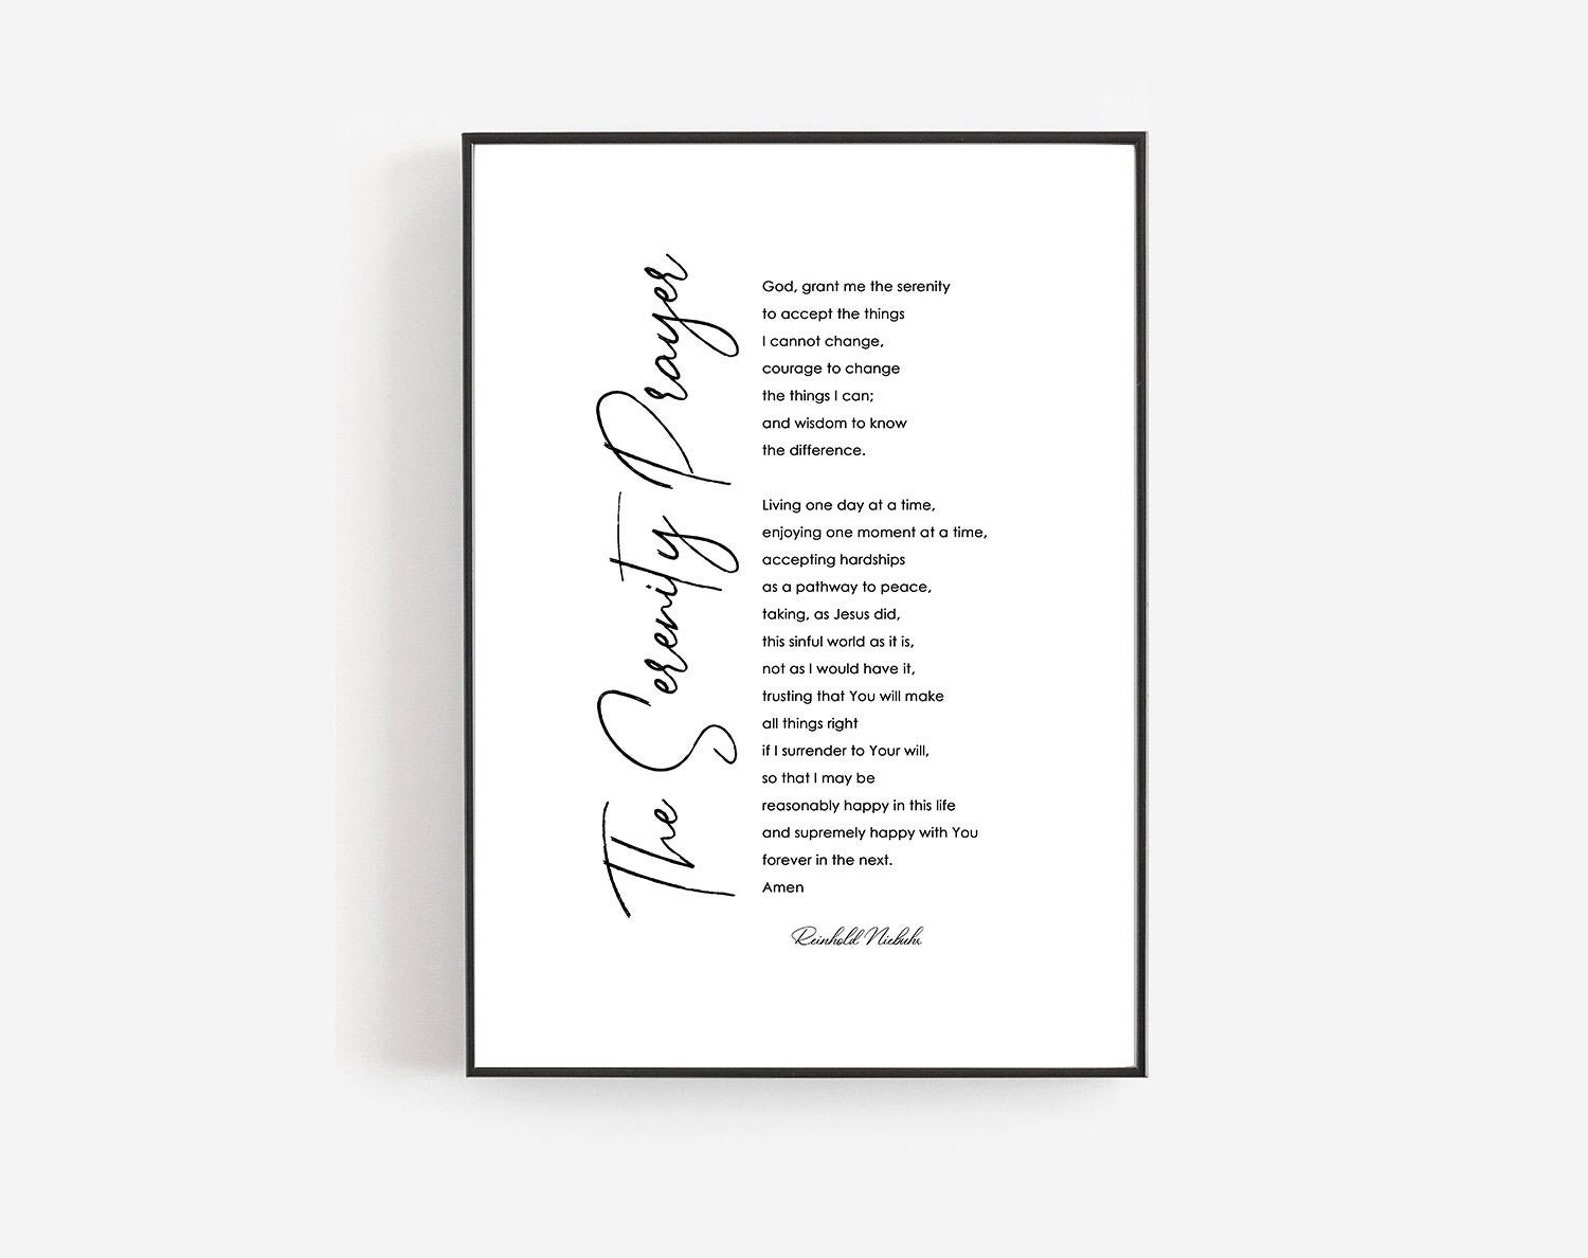 The Serenity Prayer
God, grant me the serenity
to accept the things
I cannot change,
courage to change
the things I can;
and wisdom to know
the difference.
Living one day at a time,
enjoying one moment at a time,
accepting hardships
as a pathway to peace,
taking, as Jesus did,
this sinful world as it is,
not as I would have it,
trusting that You will make
all things right
if I surrender to Your will,
so that I may be
reasonably happy in this life
and supremely happy with You
forever in the next.
Amen
Reinhold Niebuhr